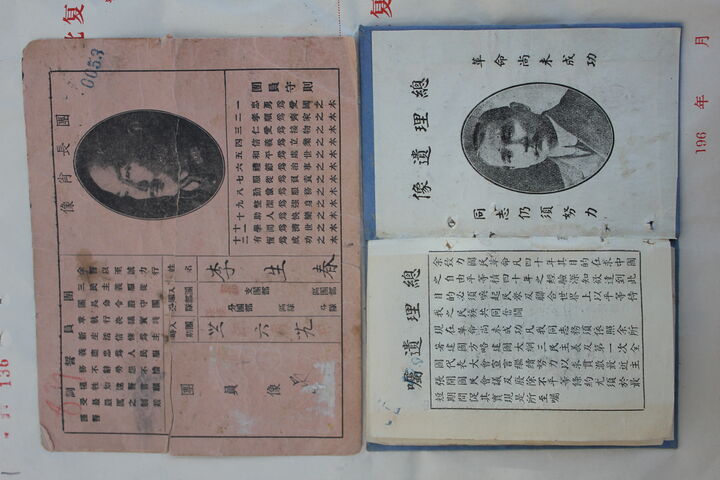 革命尚未成功
總理遺像
同志仍須努力
總理遺囑
余致力國民革命凡四十年其目的在求中國
之自由平等積四十年之經驗深知欲達到此
目的必須喚起民眾及聯合世界上以平等待
我之民族共同奮鬥
現在革命尚未成功凡我同志務須依照余所
著建國方略建國大綱三民主義及第一次全
國代表大會宣言繼續努力以求貫徹最近主
張開國民會議及廢除不平等條約尤須於最
短期間促其實現是所至囑
0053
團長肖像
團員守則
一 忠勇為愛國之本
二 孝順為齊家之本
三 仁愛為接物之本
四 信義為立業之本
五 和平為處世之本
六 禮節為治事之本
七 服從為負責之本
八 勤儉為服務之本
九 整潔為強身之本
十 助人為快樂之本
十一 學問為濟世之本
十二 有恆為成功之本
團員誓詞
余誓以至誠力行
三民主義服從
團長命令嚴守
姓名 李生春
支團部 區團部
分團部
區隊 分隊
卅 六 九
團員像
复
196 年 月
136